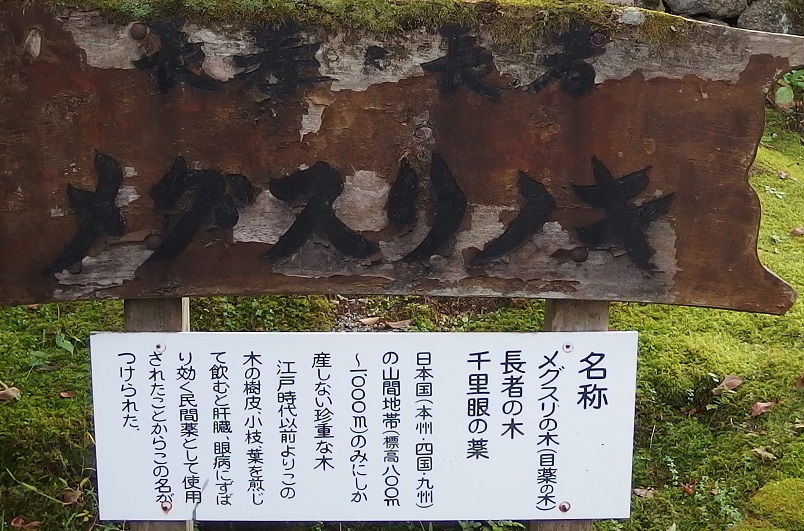 長者
メグスリノキ
名称
メグスリの木(目薬の木)
長者の木
千里眼の薬
日本国(本州・四国・九州)
の山間地帯(標高八〇〇m
～一〇〇〇m)のみにしか
産しない珍重な木
江戸時代以前よりこの
木の樹皮、小枝、葉を煎じ
て飲むと肝臓、眼病にずば
り効く民間薬として使用
されたことからこの名が
つけられた、